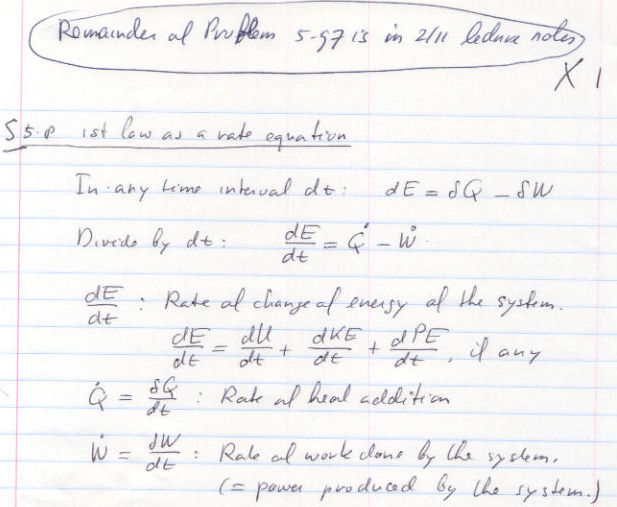 Remainder of Problem 5-97 is in 2/11 lecture notes
X 1
§5.8 1st law as a rate equation
In any time interval dt: dE = δQ - δW
Divide by dt: dE/dt = Q̇ - Ẇ
dE/dt : Rate of change of energy of the system.
dE/dt = dU/dt + dKE/dt + dPE/dt, if any
Q̇ = δQ/dt : Rate of heat addition
Ẇ = δW/dt : Rate of work done by the system.
(= power produced by the system.)